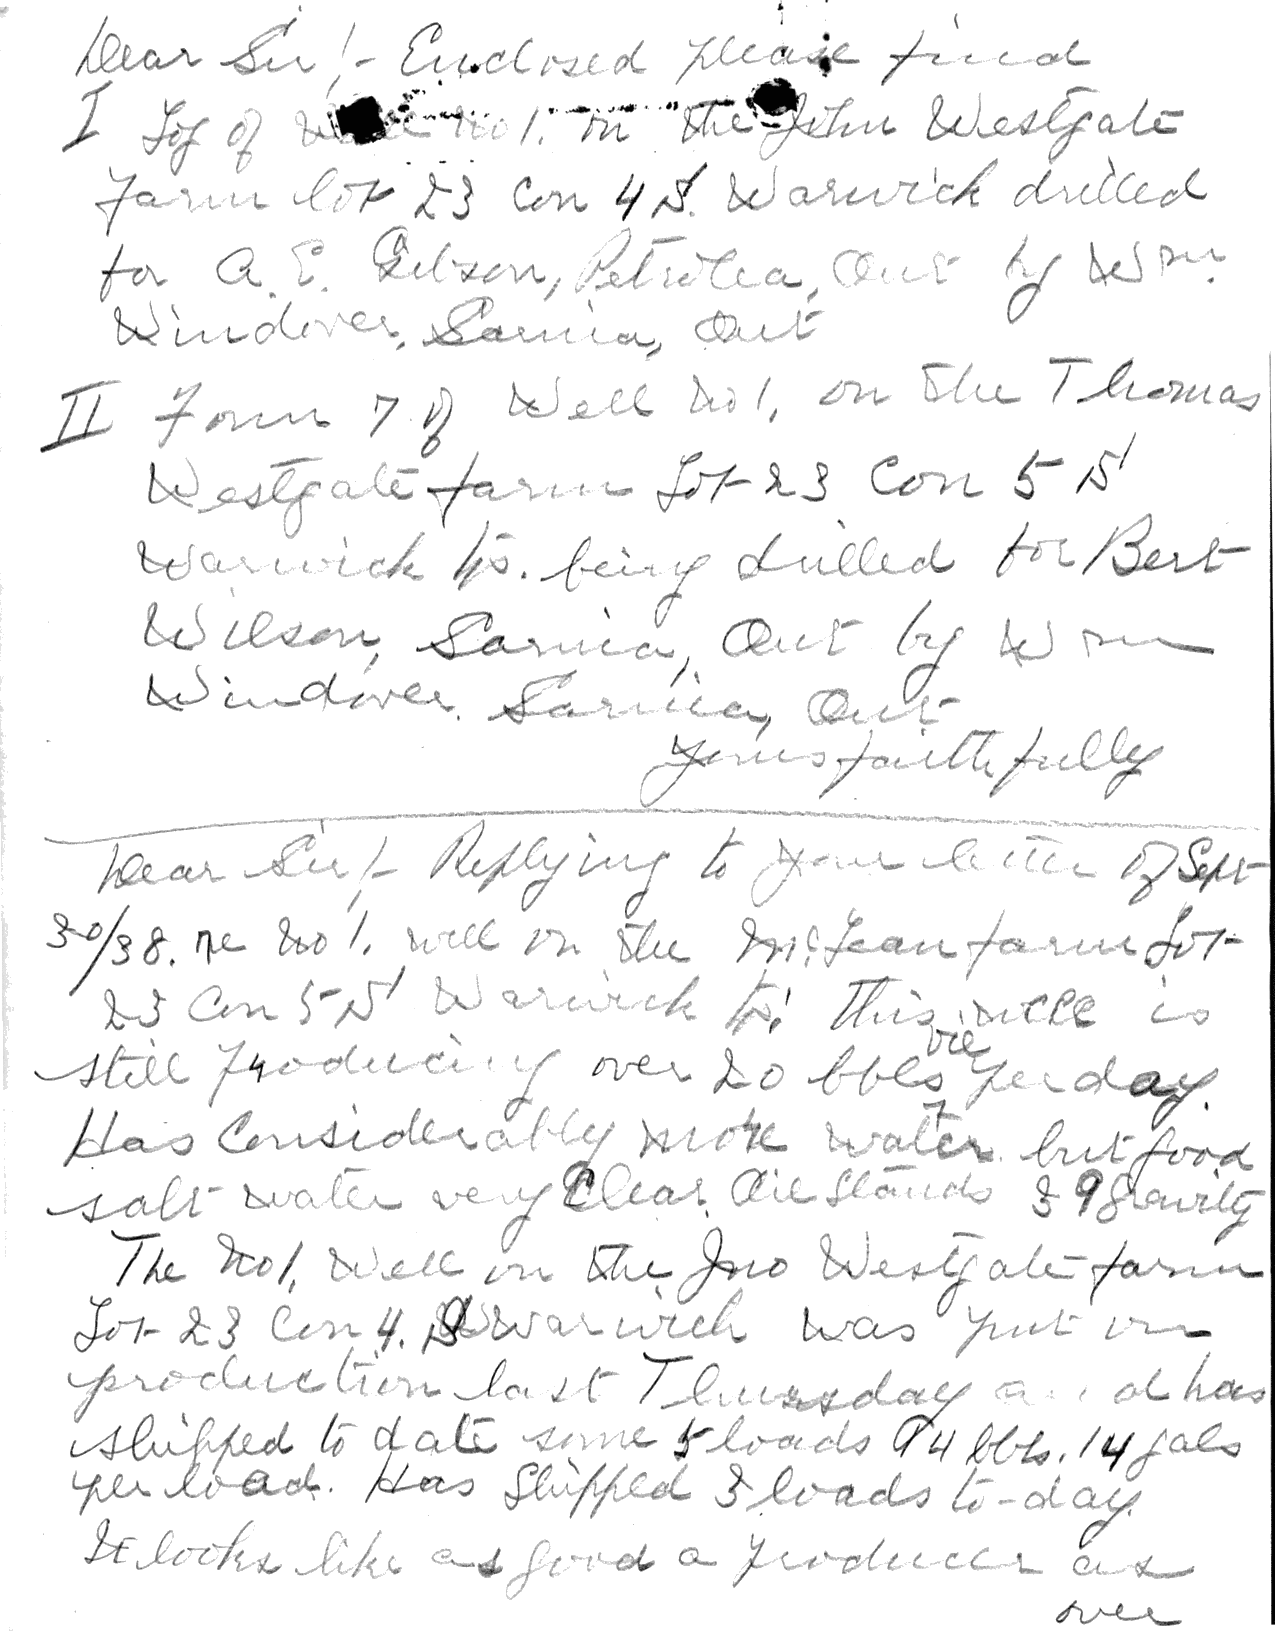 Dear Sir/- Enclosed please find
I Log of Well No 1. on the John Westgate
farm lot 23 Con 4 S. Warwick drilled
for A. E. Gibson, Petrolea, Ont by Wm.
Windover, Sarnia, Ont
II Form 7 of Well No 1. on the Thomas
Westgate farm Lot 23 Con 5 S
Warwick tp. being drilled for Bert
Wilson, Sarnia, Ont by Wm
Windover. Sarnia, Ont
Yours faithfully
Dear Sir/- Replying to your letter of Sept
30/38. re No 1. well on the McLean farm Lot
23 Con 5 S Warwick tp. This well is
still producing over 20 bbls oil per day.
Has Considerably more water but good
salt water very Clear. Oil stands 39 gravity
The No 1. Well on the Jno Westgate farm
Lot 23 Con 4. S Warwick was put on
production last Thursday and has
shipped to date some 5 loads 94 bbls. 14 gals
per load. Has Shipped 3 loads to-day.
It looks like as good a producer as
over